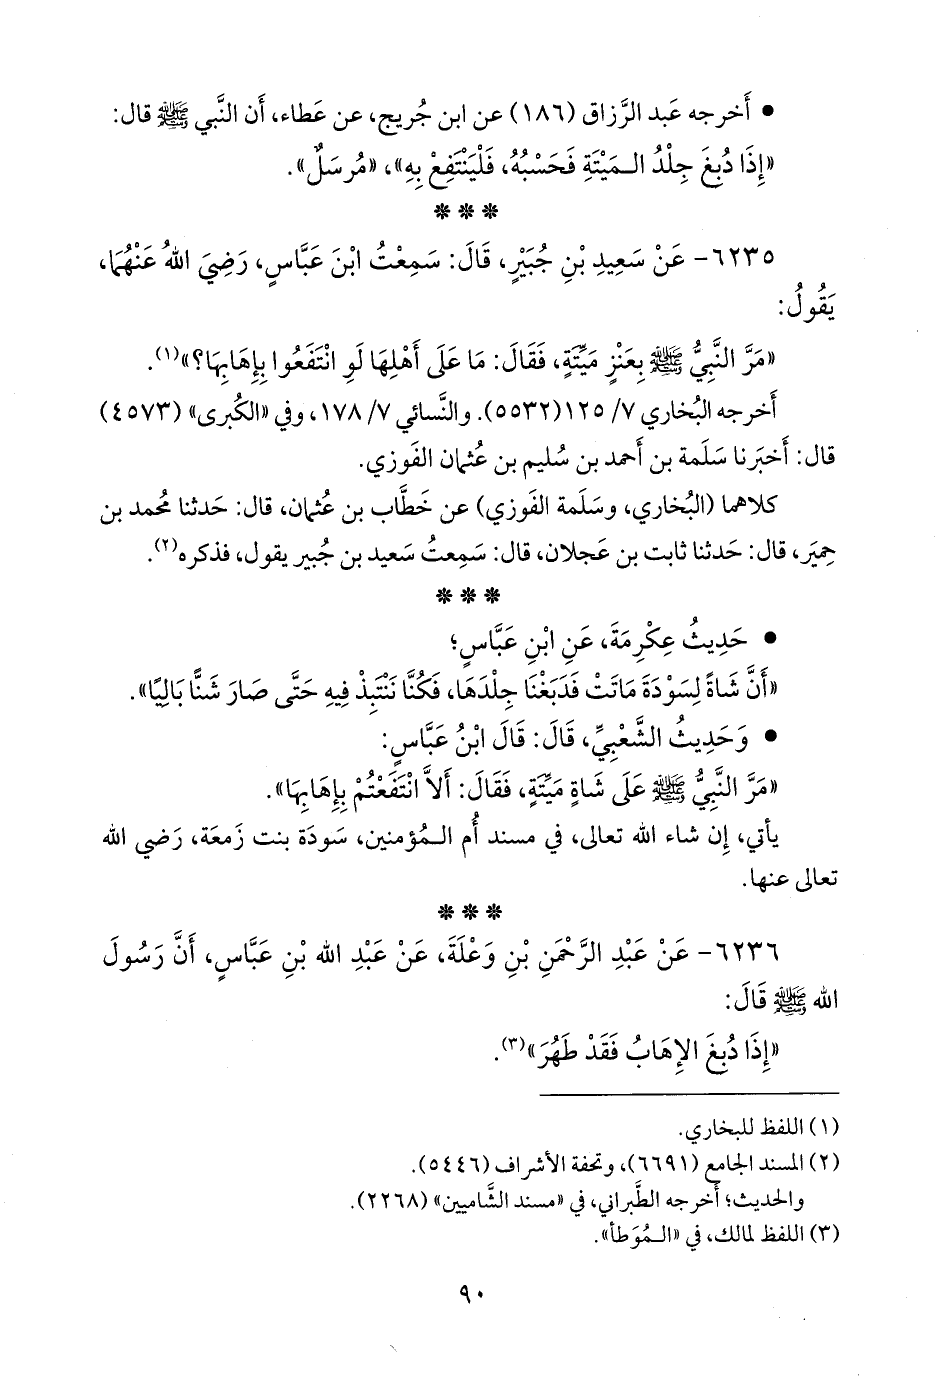 • أَخرجه عَبد الرَّزاق (١٨٦) عن ابن جُريج، عن عَطاء، أَن النَّبي ﷺ قال:
«إِذَا دُبِغَ جِلْدُ الـمَيْتَةِ فَحَسْبُهُ، فَلْيَنْتَفِعْ بِهِ»، «مُرسَلٌ».
* * *
٦٢٣٥- عَنْ سَعِيدِ بْنِ جُبَيْرٍ، قَالَ: سَمِعْتُ ابْنَ عَبَّاسٍ، رَضِيَ اللهُ عَنْهُمَا،
يَقُولُ:
«مَرَّ النَّبِيُّ ﷺ بِعَنْزٍ مَيِّتَةٍ، فَقَالَ: مَا عَلَى أَهْلِهَا لَوِ انْتَفَعُوا بِإِهَابِهَا؟»(١).
أَخرجه البُخاري ٧/ ١٢٥(٥٥٣٢). والنَّسائي ٧/ ١٧٨، وفي «الكُبرى» (٤٥٧٣)
قال: أَخبَرنا سَلَمة بن أَحمد بن سُليم بن عُثمان الفَوزي.
كلاهما (البُخاري، وسَلَمة الفَوزي) عن خَطَّاب بن عُثمان، قال: حَدثنا مُحمد بن
حِميَر، قال: حَدثنا ثابت بن عَجلان، قال: سَمِعتُ سَعيد بن جُبير يقول، فذكره(٢).
* * *
• حَدِيثُ عِكْرِمَةَ، عَنِ ابْنِ عَبَّاسٍ؛
«أَنَّ شَاةً لِسَوْدَةَ مَاتَتْ فَدَبَغْنَا جِلْدَهَا، فَكُنَّا نَنْتَبِذْ فِيهِ حَتَّى صَارَ شَنًّا بَالِيًا».
• وَحَدِيثُ الشَّعْبِيِّ، قَالَ: قَالَ ابْنُ عَبَّاسٍ:
«مَرَّ النَّبِيُّ ﷺ عَلَى شَاةٍ مَيِّتَةٍ، فَقَالَ: أَلاَّ انْتَفَعْتُمْ بِإِهَابِهَا».
يأتي، إِن شاء الله تعالى، في مسند أُم الـمُؤمنين، سَودَة بنت زَمعَة، رَضي الله
تعالى عنها.
* * *
٦٢٣٦- عَنْ عَبْدِ الرَّحْمَنِ بْنِ وَعْلَةَ، عَنْ عَبْدِ الله بْنِ عَبَّاسٍ، أَنَّ رَسُولَ
الله ﷺ قَالَ:
«إِذَا دُبِغَ الإِهَابُ فَقَدْ طَهُرَ»(٣).
(١) اللفظ للبخاري.
(٢) المسند الجامع (٦٦٩١)، وتحفة الأشراف (٥٤٤٦).
والحديث؛ أَخرجه الطَّبراني، في «مسند الشَّاميين» (٢٢٦٨).
(٣) اللفظ لمالك، في «الـمُوَطأ».
٩٠